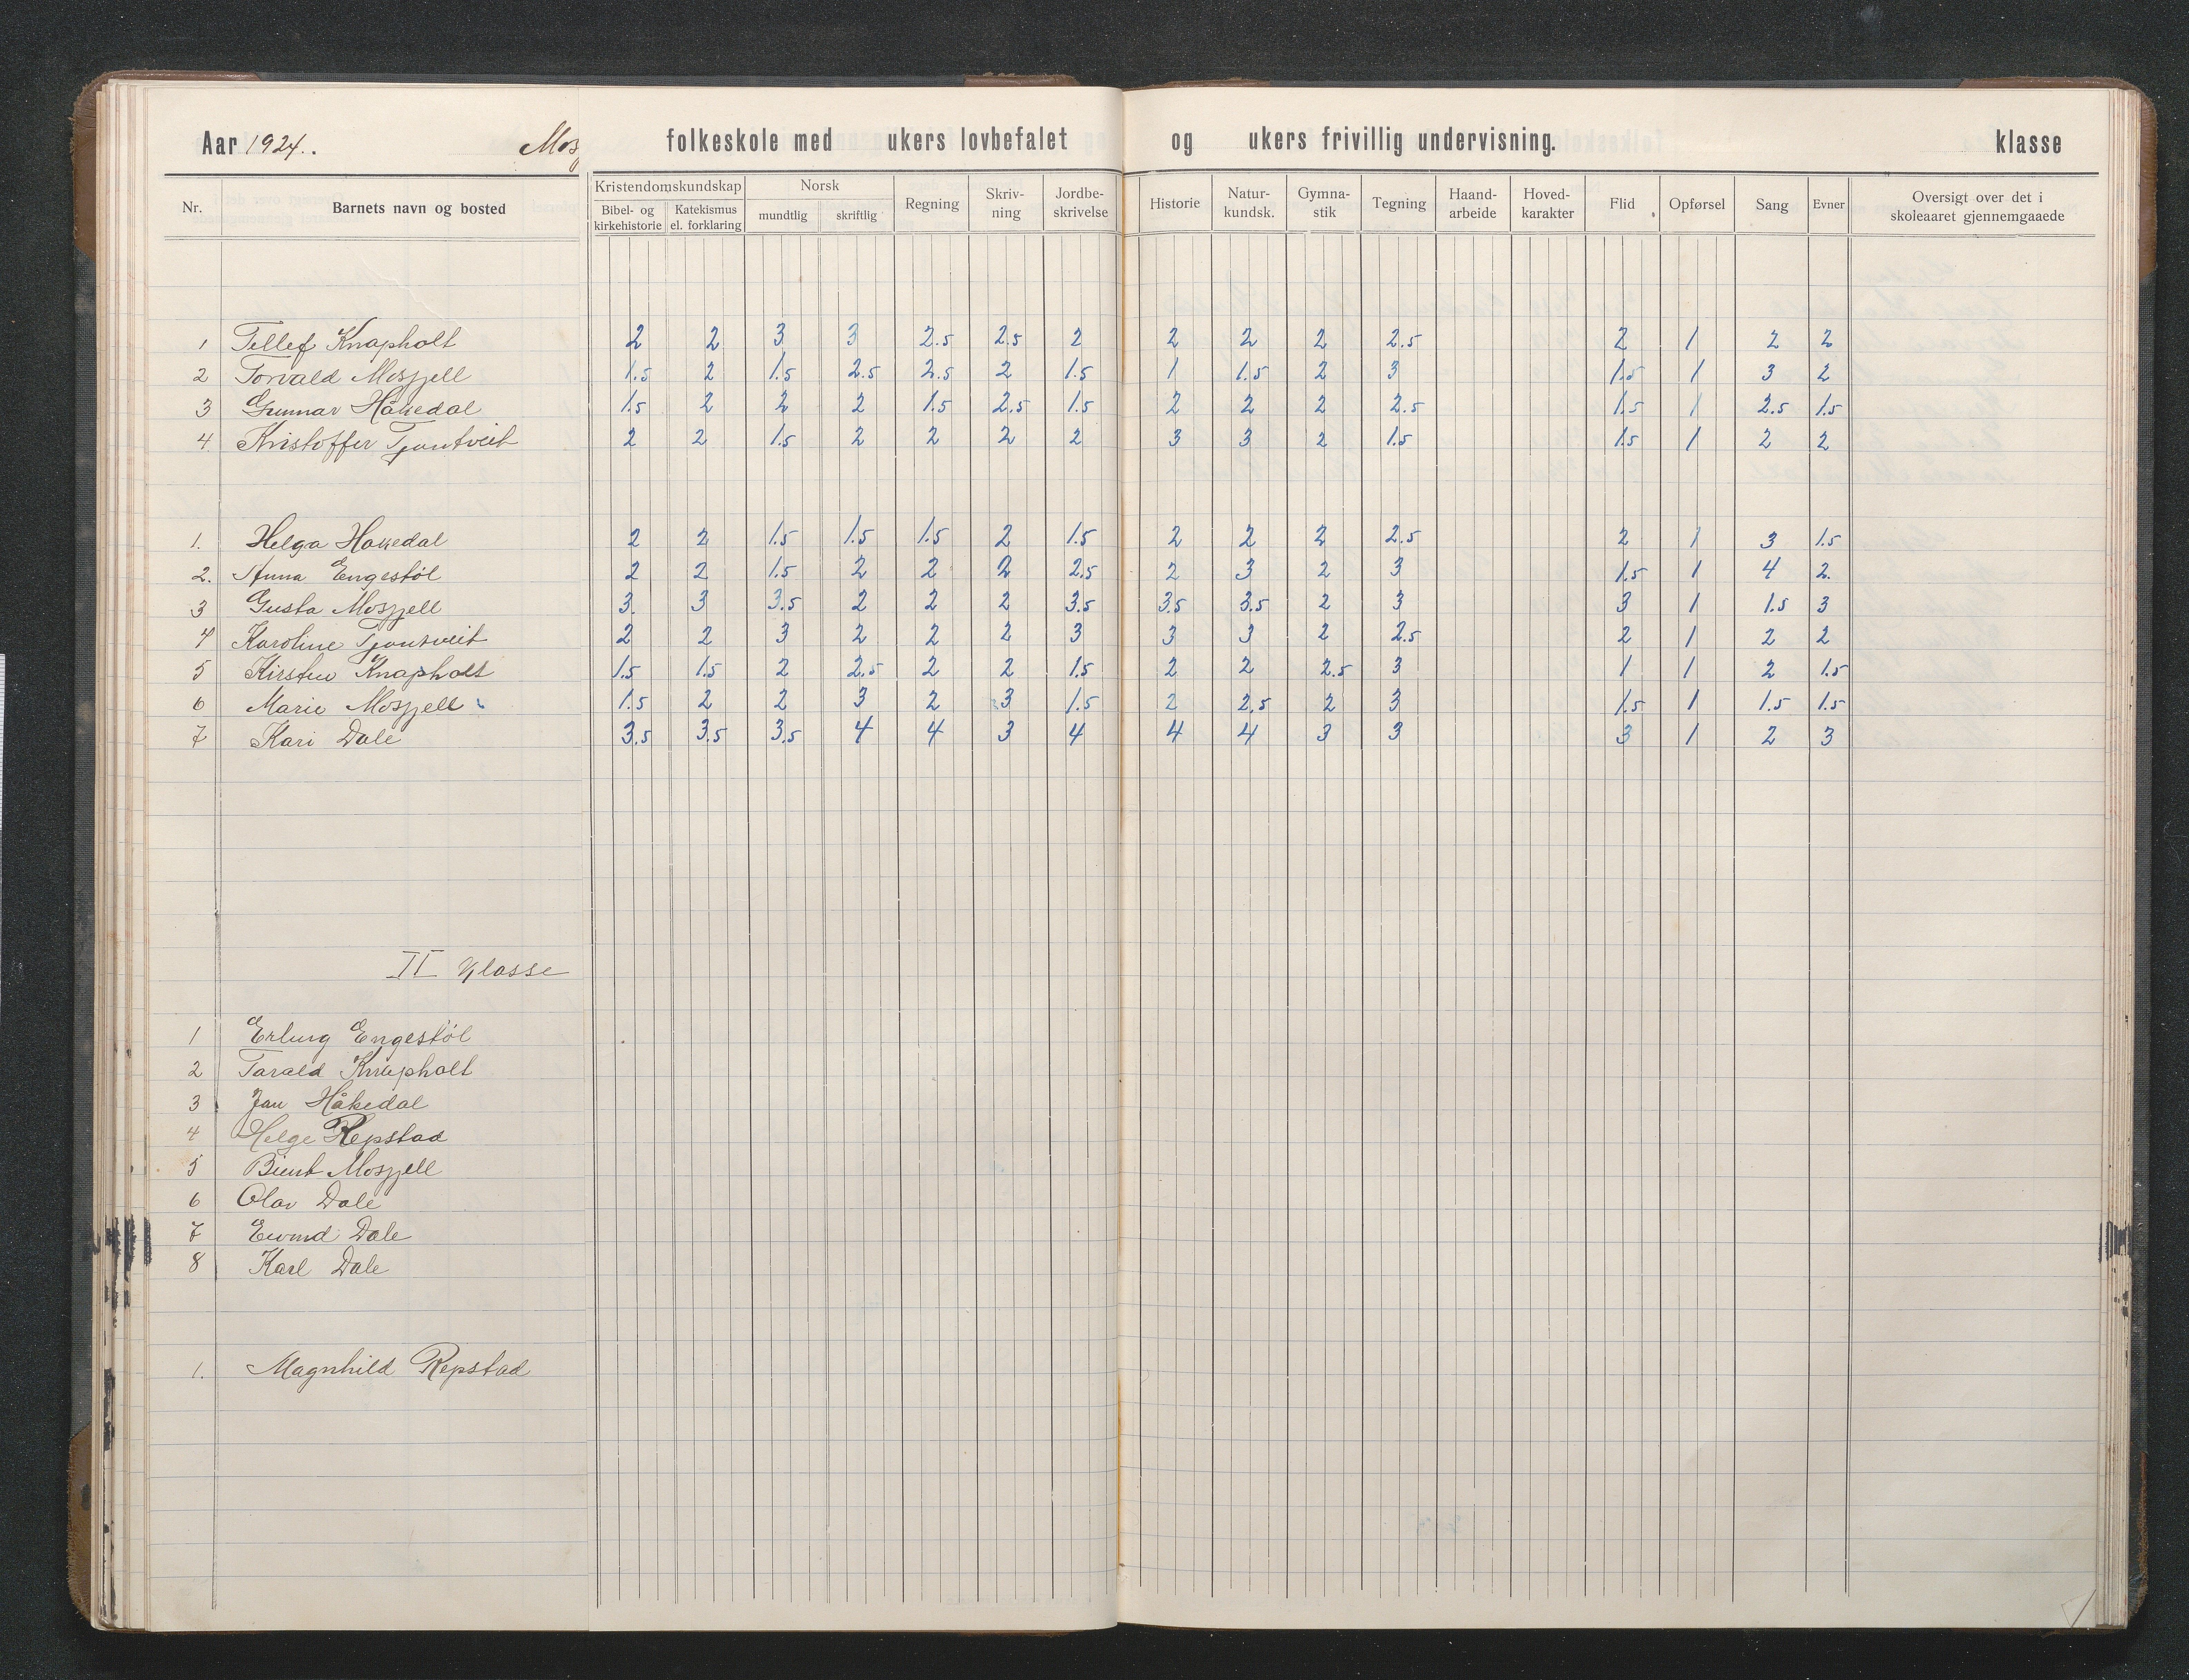 Aar 1924. Mos folkeskole med ukers lovbefalet og ukers frivillig undervisning. klasse
Nr. Barnets navn og bosted Kristendomskundskap Bibel- og kirkehistorie Katekismus el. forklaring Norsk mundtlig skriftlig Regning Skriv-ning Jordbe-skrivelse Historie Natur-kundsk. Gymna-stik Tegning Haand-arbeide Hoved-karakter Flid Opførsel Sang Evner Oversigt over det i skoleaaret gjennemgaaede
1 Tellef Knapholt 2 2 3 3 2.5 2.5 2 2 2 2 2.5 2 1 2 2
2 Torvald Mosfjell 1.5 2 1.5 2.5 2.5 2 1.5 1 1.5 2 3 1.5 1 3 2
3 Gunnar Håkedal 1.5 2 2 2 1.5 2.5 1.5 2 2 2 2.5 1.5 1 2.5 1.5
4. Kristoffer Tjontveit 2 2 1.5 2 2 2 2 3 3 2 1.5 1.5 1 2 2
1. Helga Hakedal 2 2 1.5 1.5 1.5 2 1.5 2 2 2 2.5 2 1 3 1.5
2. Anna Engestøl 2 2 1.5 2 2 2 2.5 2 3 2 3 1.5 1 4 2.
3 Gusta Mosfjell 3. 3 3.5 2 2 2 3.5 3.5 3.5 2 3 3 1 1.5 3
4 Karoline Tjontveit 2 2 3 2 2 2 3 3 3 2 2.5 2 1 2 2
5 Kirsten Knapholt 1.5 1.5 2 2.5 2 2 1.5 2 2 2.5 3 1 1 2 1.5
6 Marie Mosfjell 1.5 2 2 3 2 3 1.5 2 2.5 2 3 1.5 1 1.5 1.5
7 Kari Dale 3.5 3.5 3.5 4 4 3 4 4 4 3 3 3 1 2 3
II Klasse
1 Erling Engestøl
2 Tarald Knapholt
3 Jan Håkedal
4 Helge Repstad
5 Bient Mosfjell
6 Olav Dale
7 Eivind Dale
8 Karl Dale
1. Magnhild Repstad